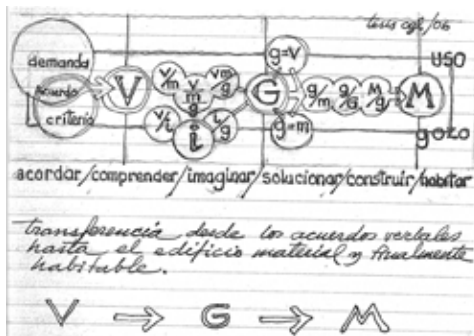 tesis cgl/06
demanda
acuerdo
criterio
V
v/m
vm/g
v/m/g
v/i
i/g
i
g=v
G
g=m
g/m
g/a
M/g
M
USO
gozo
acordar/comprender/imaginar/solucionar/construir/habitar
transferencia desde los acuerdos verbales
hasta el edificio material y finalmente
habitable.
V → G → M